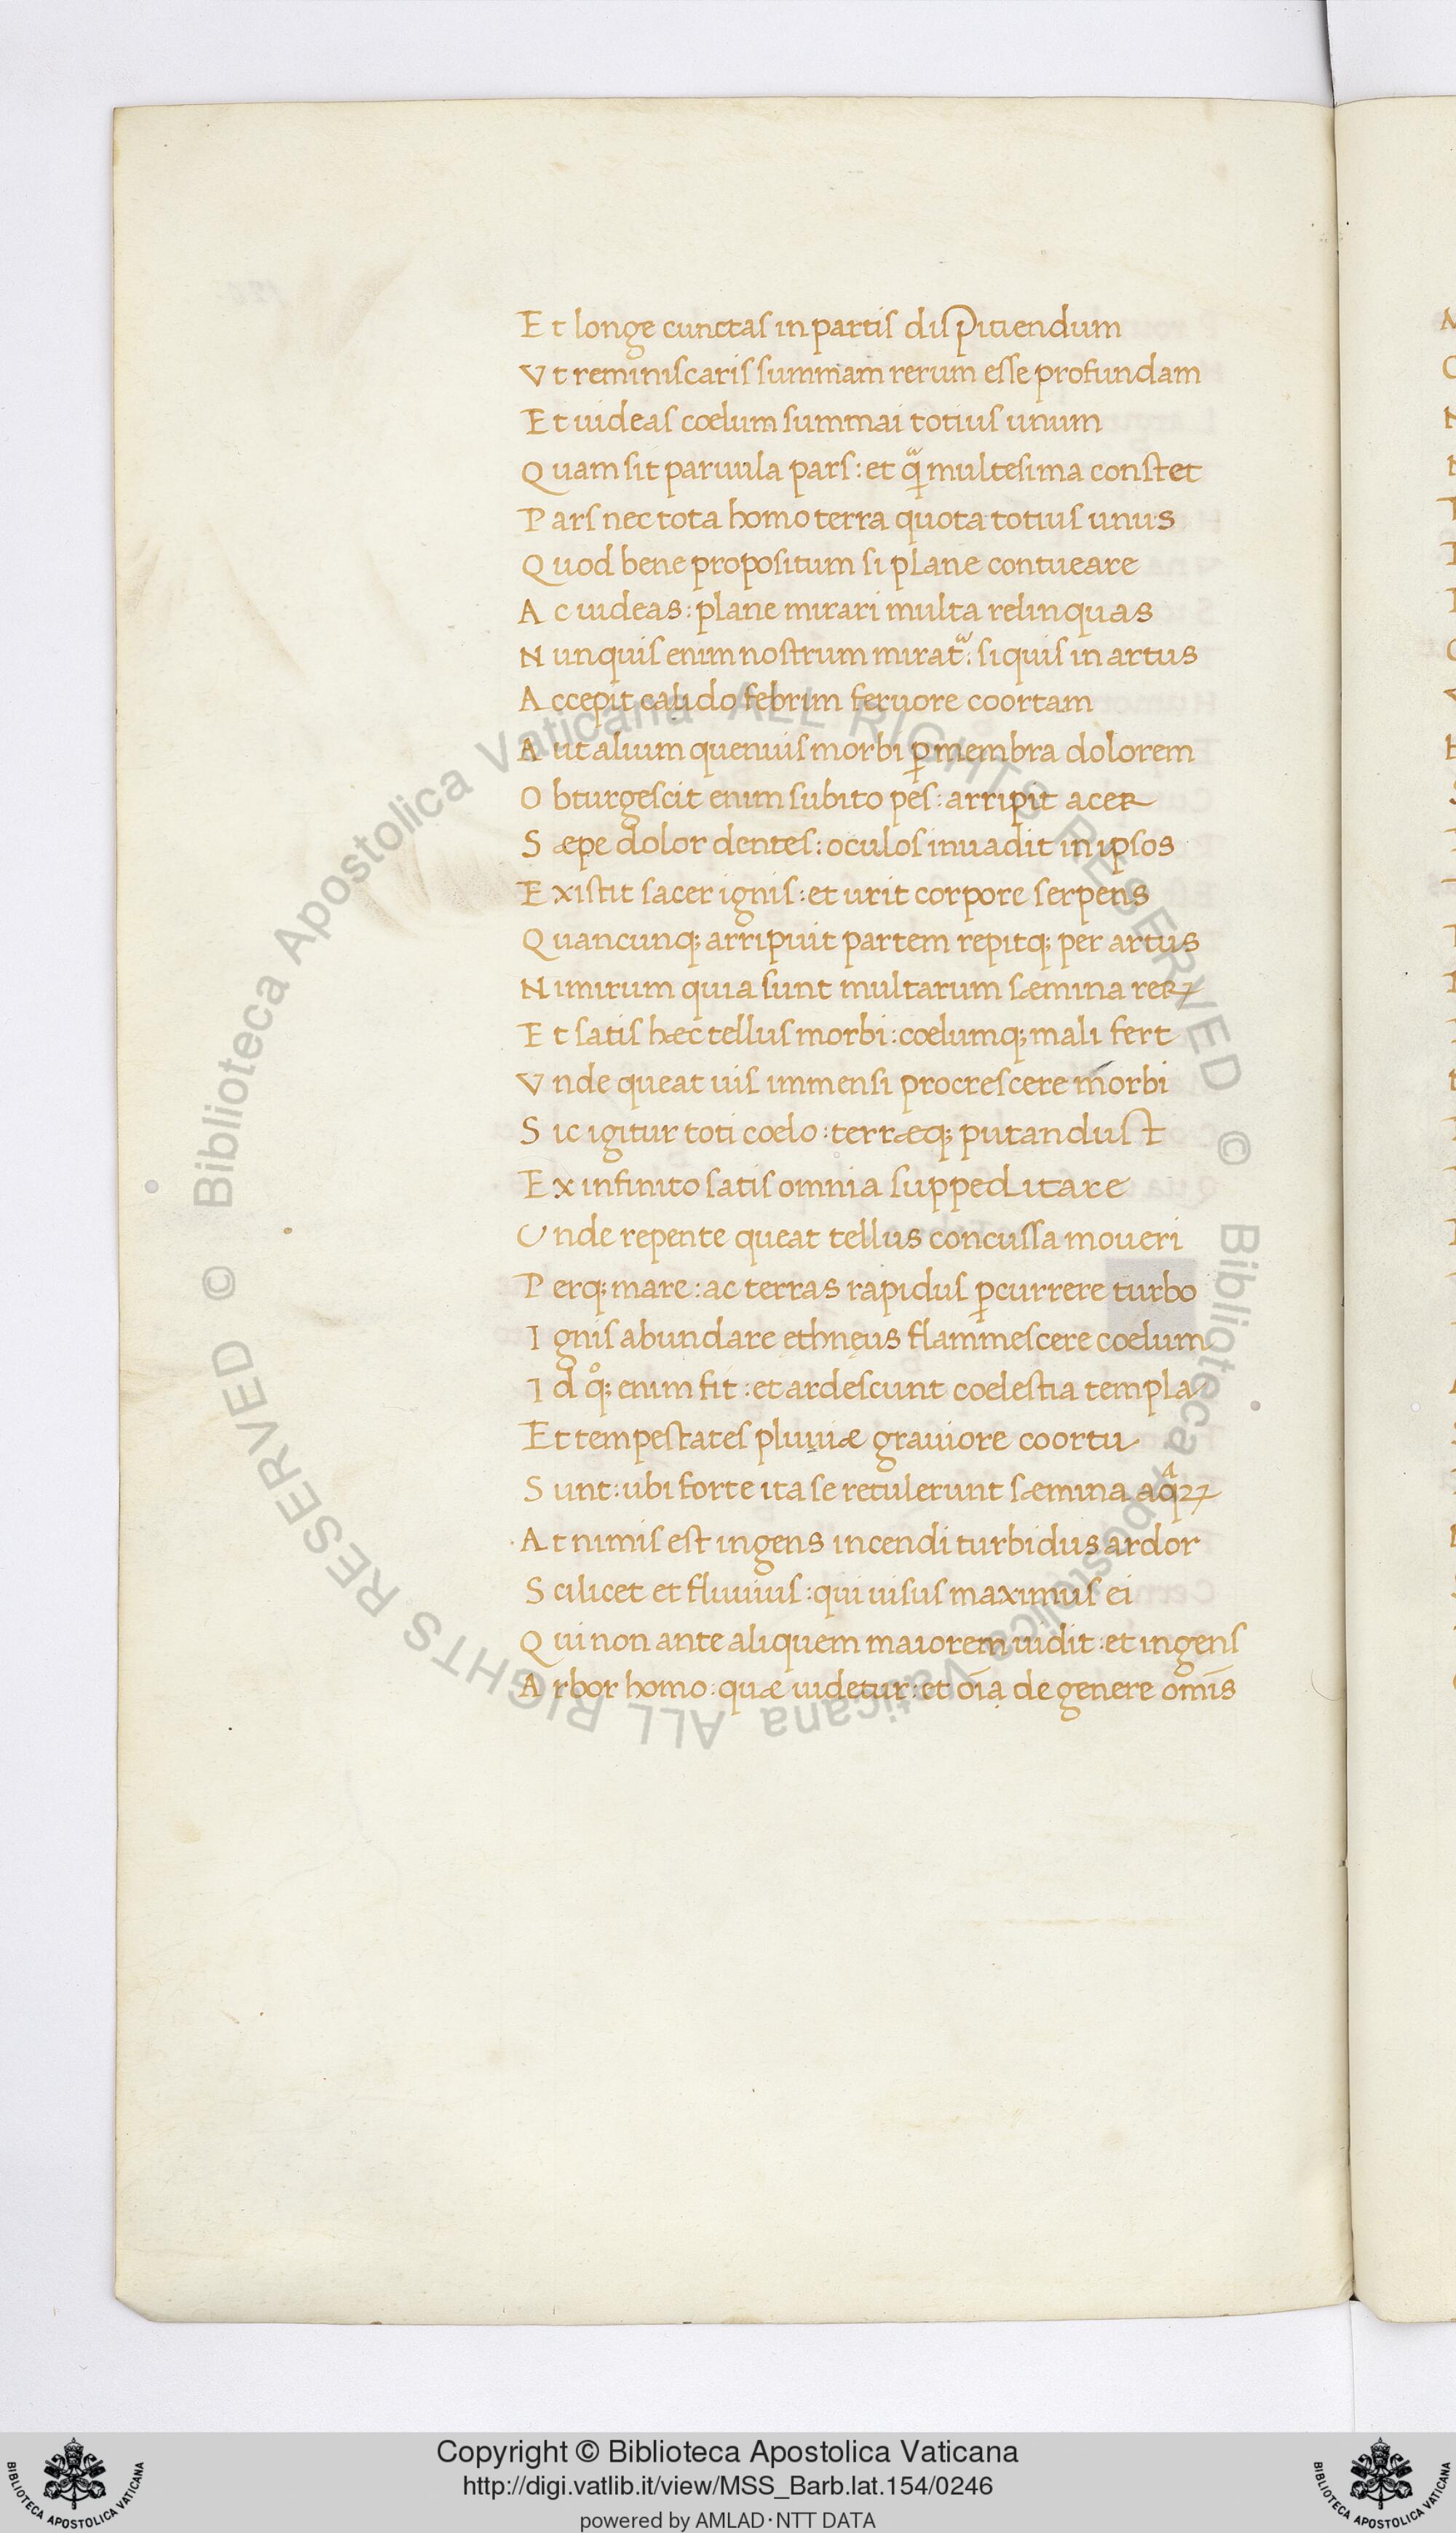 E t longe cunctas in partis disꝑitiendum
V t reminiscaris summam rerum esse profundam
E t uideas cœlum summai totius unum
Q uam sit paruula pars: et qᷓ multesima constet
P ars nec tota homo terra quota totius unus
Q uod bene propositum si plane contueare
A c uideas: plane mirari multa relinquas
N unquis enim nostrum mirat᷑: siquis in artus
A ccepit calido febrim feruore coortam
A ut alium quenuis morbi ꝑ membra dolorem
O bturgescit enim subito pes: arripit acer
S æpe dolor dentes: oculos inuadit in ipsos
E xistit sacer ignis: et urit corpore serpens
Q uancunq; arripuit partem repitq; per artus
N imirum quia sunt multarum sæmina reꝝ
E t satis hæc tellus morbi: coelumq; mali fert
V nde queat uis immensi procrescere morbi
S ic igitur toti coelo: terræq; putandust
E x infinito satis omnia suppeditare
V nde repente queat tellus concussa moueri
P erq; mare: ac terras rapidus ꝑcurrere turbo
I gnis abundare ethnęus flammescere coelum
I d qͦ; enim fit: et ardescunt coelestia templa
E t tempestates pluuiæ grauiore coortu
S unt: ubi forte ita se retulerunt sæmina aqͣꝝ
A t nimis est ingens incendi turbidus ardor
S cilicet et fluuius: qui uisus maximus ei
Q ui non ante aliquem maiorem uidit: et ingens
A rbor homo: quæ uidetur: et oīa de genere om̄is
© Biblioteca Apostolica Vaticana ALL RIGHTS RESERVED © Biblioteca Apostolica Vaticana ALL RIGHTS RESERVED
Copyright © Biblioteca Apostolica Vaticana
http://digi.vatlib.it/view/MSS_Barb.lat.154/0246
powered by AMLAD·NTT DATA
BIBLIOTECA APOSTOLICA VATICANA
BIBLIOTECA APOSTOLICA VATICANA